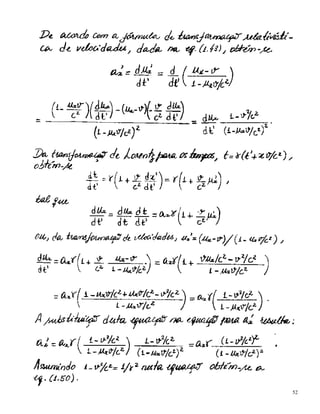 De acordo com a fórmula de transformação relativísti-
ca de velocidades, dada na eq. (1.48), obtém-se.
a'x = du'x/dt' = d/dt' ( (ux - v) / (1 - uxv/c²) )
= [ (1 - uxv/c²)(dux/dt') - (ux - v)(- v/c² dux/dt') ] / (1 - uxv/c²)² = dux/dt' (1 - v²/c²)/(1 - uxv/c²)².
Da transformação de Lorentz para os tempos, t = γ(t' + x'v/c²),
obtém-se
dt/dt' = γ(1 + v/c² dx'/dt') = γ(1 + v/c² u'x),
tal que
dux/dt' = dux/dt dt/dt' = axγ(1 + v/c² u'x)
ou, da transformação de velocidades, u'x = (ux - v)/(1 - uxv/c²),
dux/dt' = axγ(1 + v/c² (ux - v)/(1 - uxv/c²)) = axγ(1 + (vux/c² - v²/c²)/(1 - uxv/c²))
= axγ( (1 - uxv/c² + uxv/c² - v²/c²)/(1 - uxv/c²) ) = axγ( (1 - v²/c²)/(1 - uxv/c²) ).
A substituição desta equação na equação para a'x resulta:
a'x = axγ( (1 - v²/c²)/(1 - uxv/c²) ) (1 - v²/c²)/(1 - uxv/c²)² = axγ (1 - v²/c²)²/(1 - uxv/c²)³.
Assumindo 1 - v²/c² = 1/γ² nesta equação obtém-se a
eq. (1.50).
52